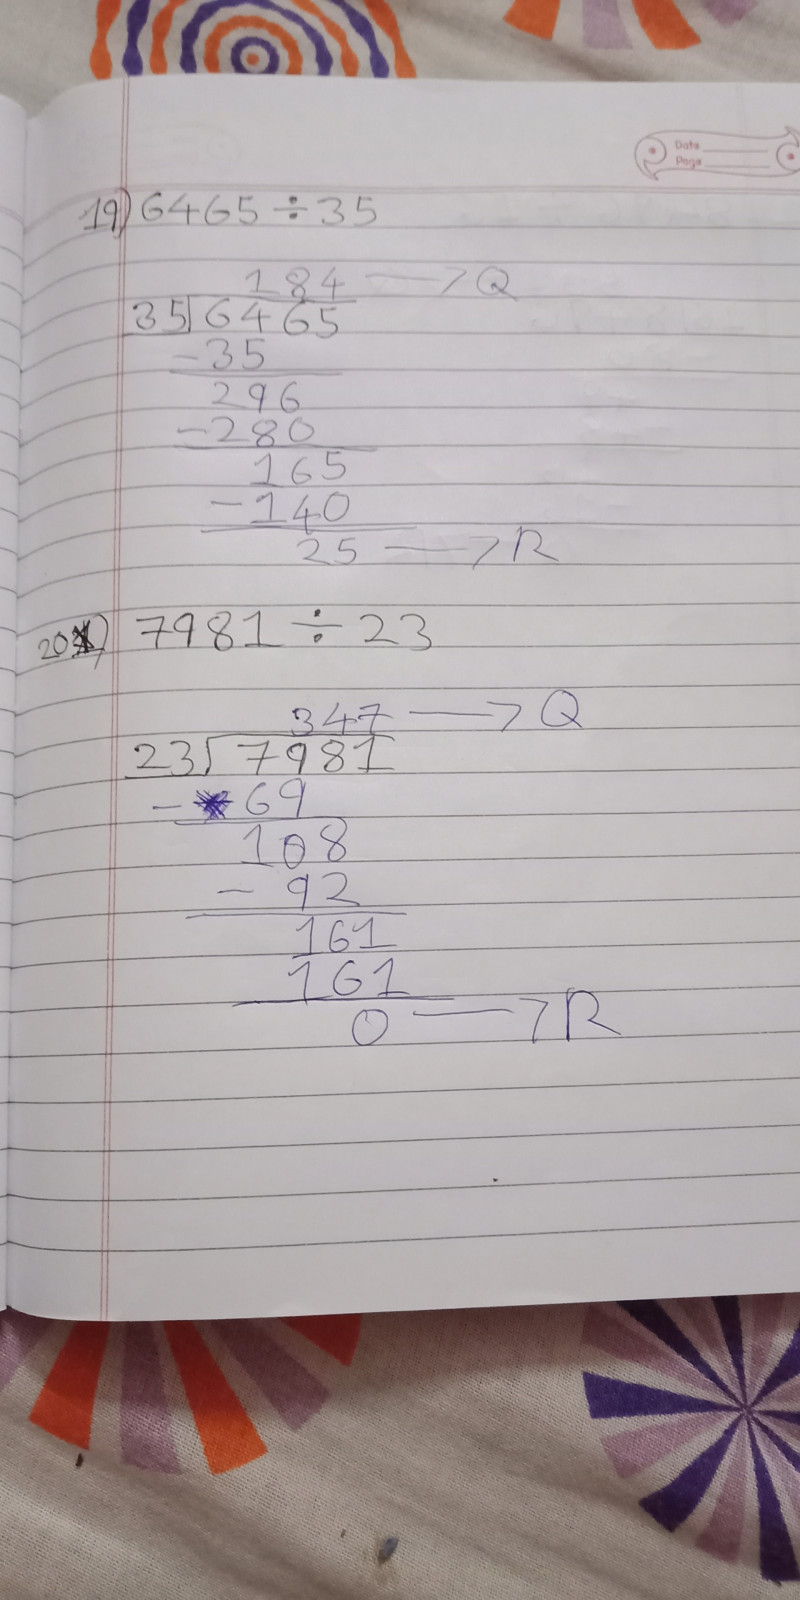 Date
Page
19) 6465 ÷ 35
184 → Q
35) 6465
-35
296
-280
165
-140
25 → R
20) 7981 ÷ 23
347 → Q
23) 7981
- 69
108
- 92
161
161
0 → R